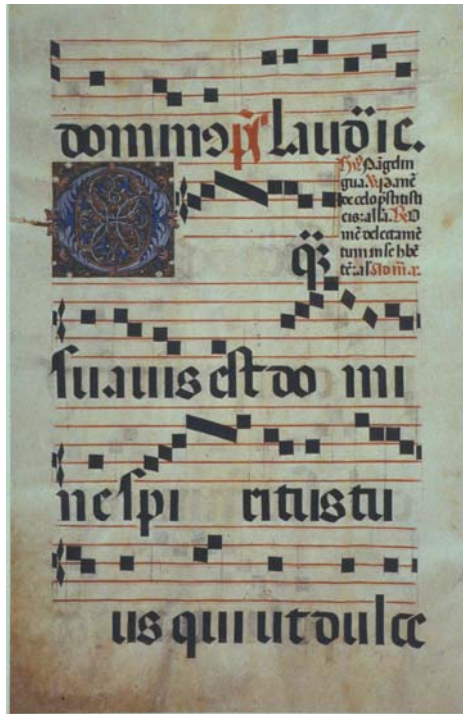 domino p̄s Laud̄ ie.
Pāge lin
gua. panē
de celo p̄stitisti
eis: alla. O
mē delectamē
tum in se hbē
tē: al Ad m̄. a.
O q̄z
suauis est do mi
ne spi ritus tu
us qui ut dulce